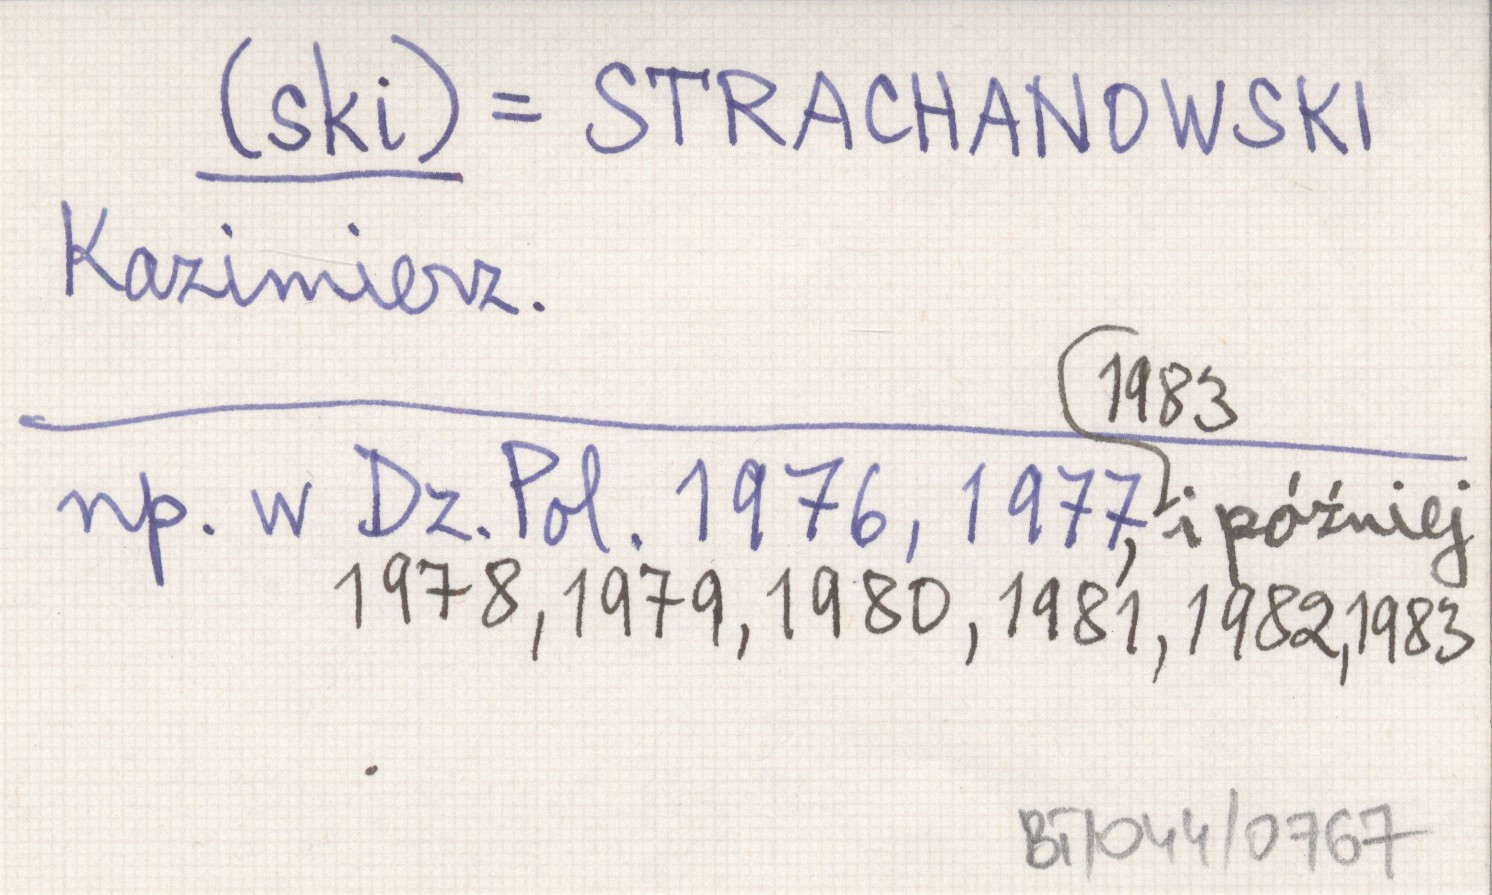 (ski) = STRACHANOWSKI
Kazimierz.
1983
np. w Dz. Pol. 1976, 1977, i później
1978, 1979, 1980, 1981, 1982, 1983
BT/044/0767